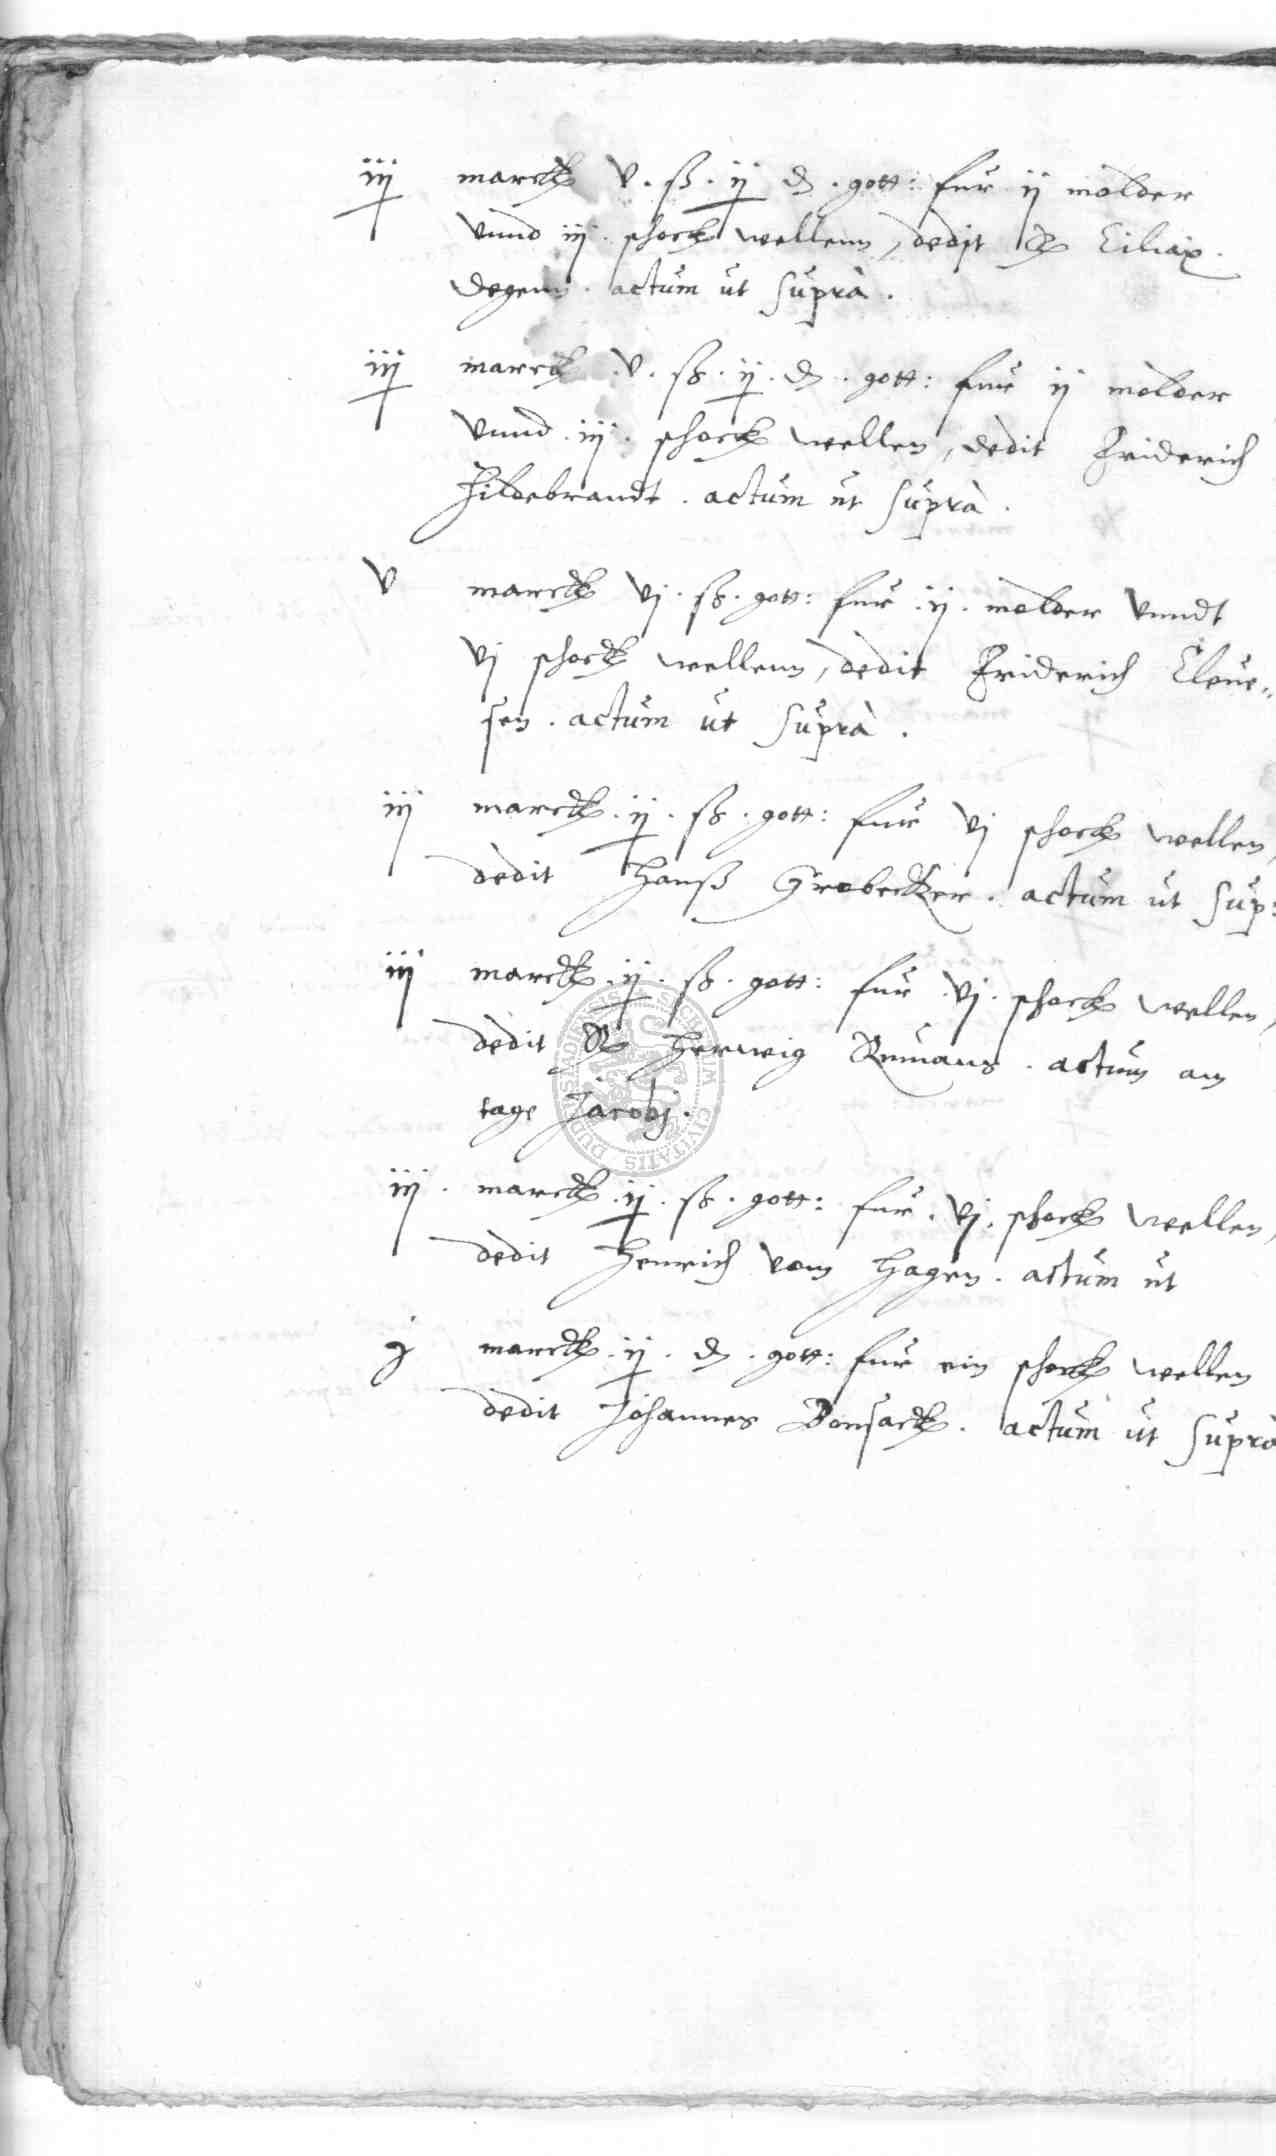 iij marck v. ß. ij d. gott: fur ij molder
vnnd iij schock wellenn, dedit Er Ciliax
degenn. actum ut suprà.
iij marck .v. ß. ij. d. gott: fur ij molder
vnnd .iij. schock wellen, dedit Friderich
Hildebrandt. actum ut suprà.
v marck vj. ß. gott: fur .ij. molder vnndt
vj schock wellenn, dedit Friderich Eleue-
sen. actum ut suprà.
iij marck .ij. ß. gott: fur vj schock wellen,
dedit Hanß Grobecker. actum ut sup:
iij marck .ij. ß. gott: fur .vj. schock wellen,
dedit Er Herwig Rumans. actum am
tage Jacobj.
iij. marck .ij. ß. gott: fur .vj. schock wellen,
dedit Henrich vom Hagen. actum ut
j marck .ij. d. gott: fur ein schock wellen
dedit Johannes Donsack. actum ut suprà
SECRETUM CIVITATIS DUDERSTADIENSIS